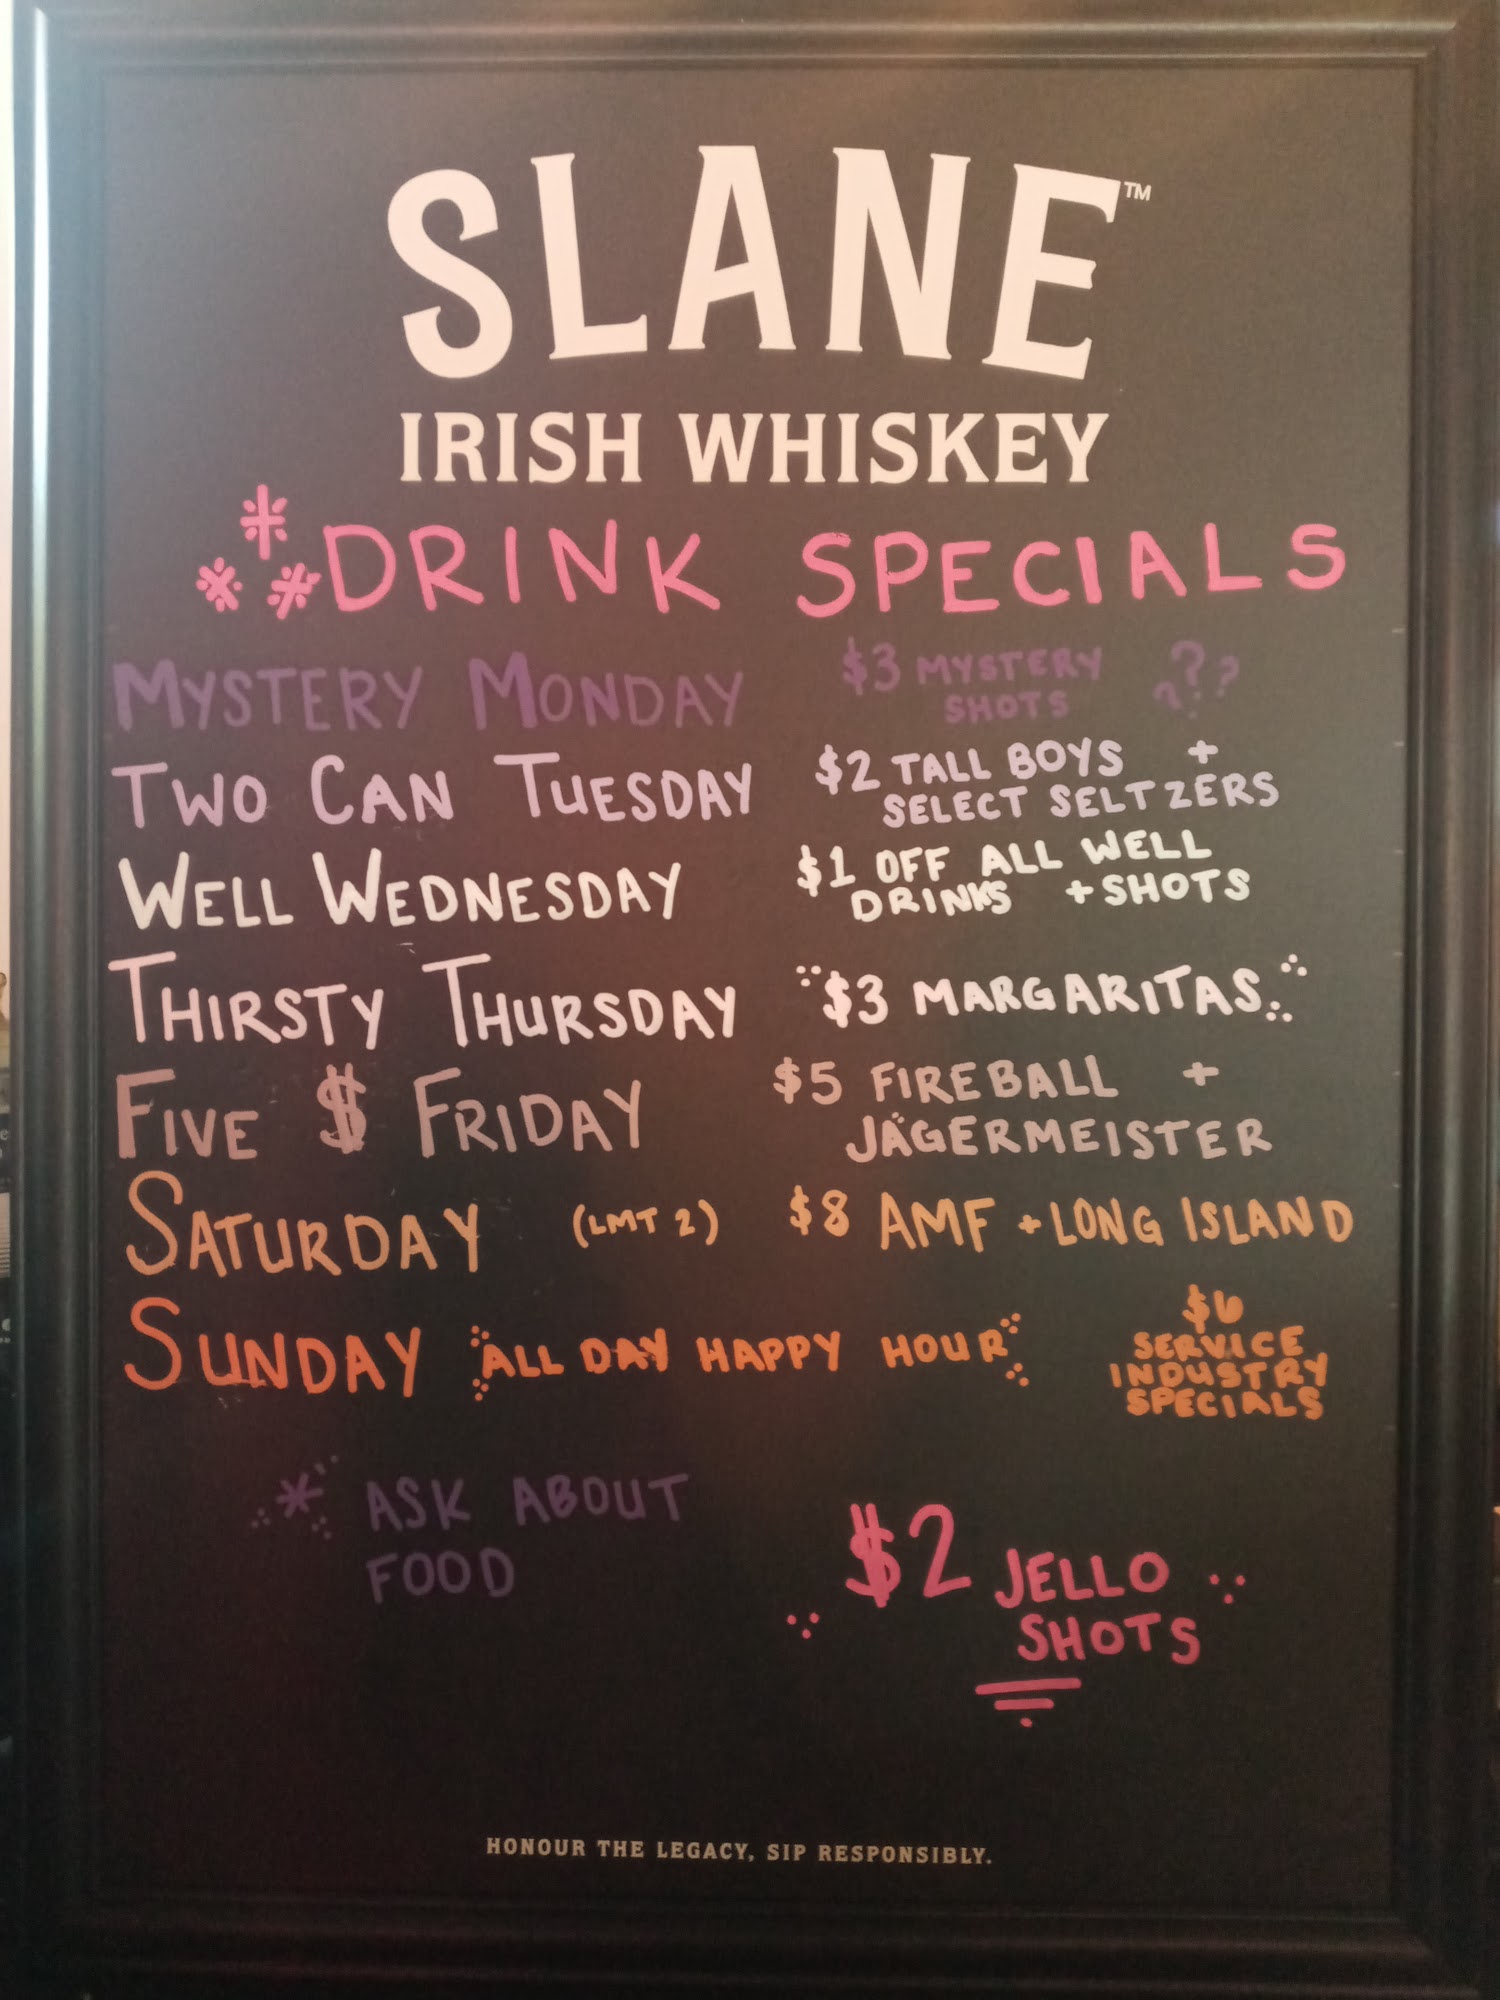 SLANE™
IRISH WHISKEY
DRINK SPECIALS
MYSTERY MONDAY $3 MYSTERY SHOTS ???
TWO CAN TUESDAY $2 TALL BOYS + SELECT SELTZERS
WELL WEDNESDAY $1 OFF ALL WELL DRINKS + SHOTS
THIRSTY THURSDAY $3 MARGARITAS
FIVE $ FRIDAY $5 FIREBALL + JÄGERMEISTER
SATURDAY (LMT 2) $8 AMF + LONG ISLAND
SUNDAY ALL DAY HAPPY HOUR $6 SERVICE INDUSTRY SPECIALS
* ASK ABOUT
FOOD
$2 JELLO
SHOTS
HONOUR THE LEGACY, SIP RESPONSIBLY.